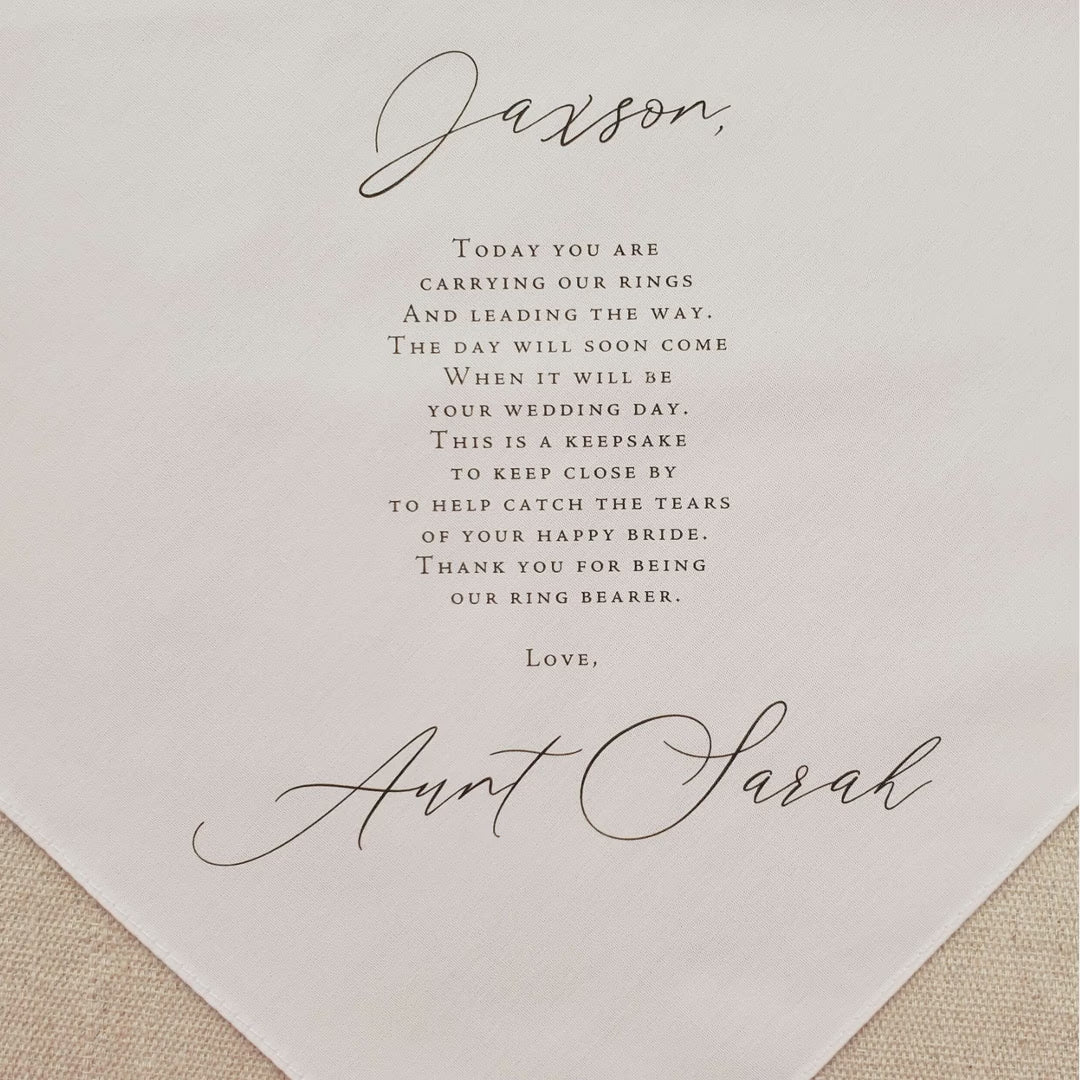 Jaxson,
Today you are
carrying our rings
And leading the way.
The day will soon come
When it will be
your wedding day.
This is a keepsake
to keep close by
to help catch the tears
of your happy bride.
Thank you for being
our ring bearer.
Love,
Aunt Sarah